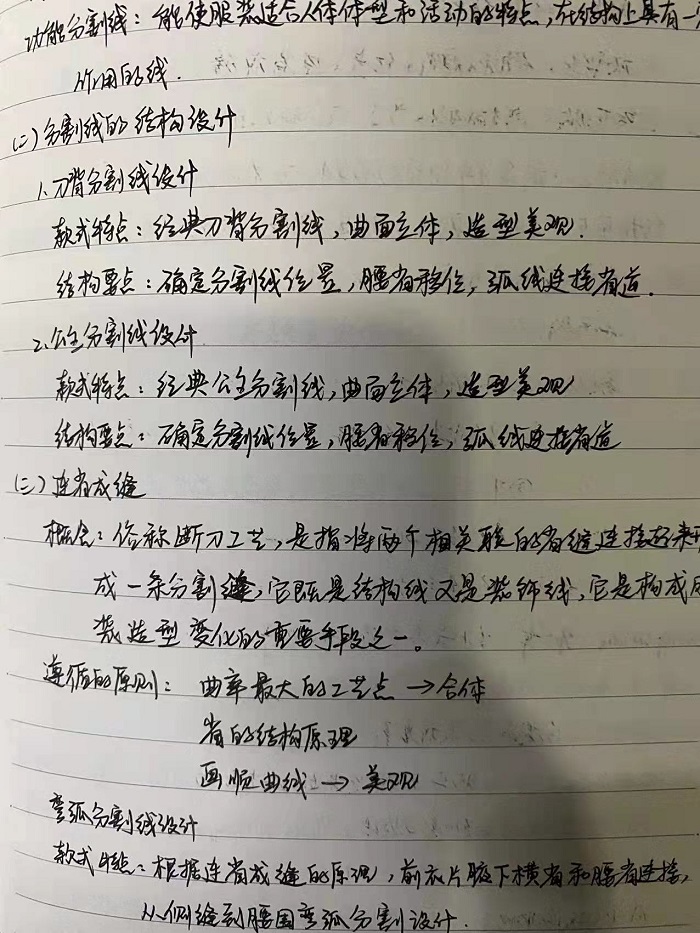 功能分割线：能使服装适合人体体型和活动的特点，在结构上具有一
作用的线．
(二)分割线的结构设计
1.刀背分割线设计
款式特点：经典刀背分割线，曲面立体，造型美观．
结构要点：确定分割线位置，腰省移位，弧线连接省道．
2.公主分割线设计
款式特点：经典公主分割线，曲面立体，造型美观
结构要点：确定分割线位置，腰省移位，弧线连接省道
(三)连省成缝
概念：俗称断刀工艺，是指将两个相关联的省缝连接起来形
成一条分割缝，它既是结构线又是装饰线，它是构成服
装造型变化的重要手段之一。
遵循的原则：曲率最大的工艺点→合体
省的结构原理
画顺曲线→美观
弯弧分割线设计
款式特点：根据连省成缝的原理，前衣片腋下横省和腰省连接，
从侧缝到腰围弯弧分割设计．